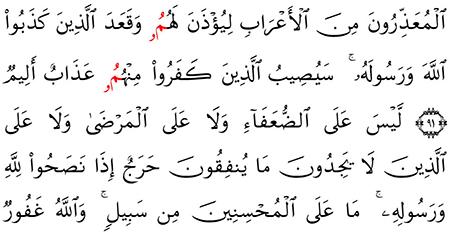 الْمُعَذِّرُونَ مِنَ الْأَعْرَابِ لِيُؤْذَنَ لَهُمُۥ وَقَعَدَ الَّذِينَ كَذَبُواْ
اللَّهَ وَرَسُولَهُۥۚ سَيُصِيبُ الَّذِينَ كَفَرُواْ مِنْهُمُۥ عَذَابٌ أَلِيمٌ
۝٩١ لَّيْسَ عَلَى الضُّعَفَآءِ وَلَا عَلَى الْمَرْضَىٰ وَلَا عَلَى
الَّذِينَ لَا يَجِدُونَ مَا يُنفِقُونَ حَرَجٌ إِذَا نَصَحُواْ لِلَّهِ
وَرَسُولِهِۦۚ مَا عَلَى الْمُحْسِنِينَ مِن سَبِيلٍۚ وَاللَّهُ غَفُورٌ